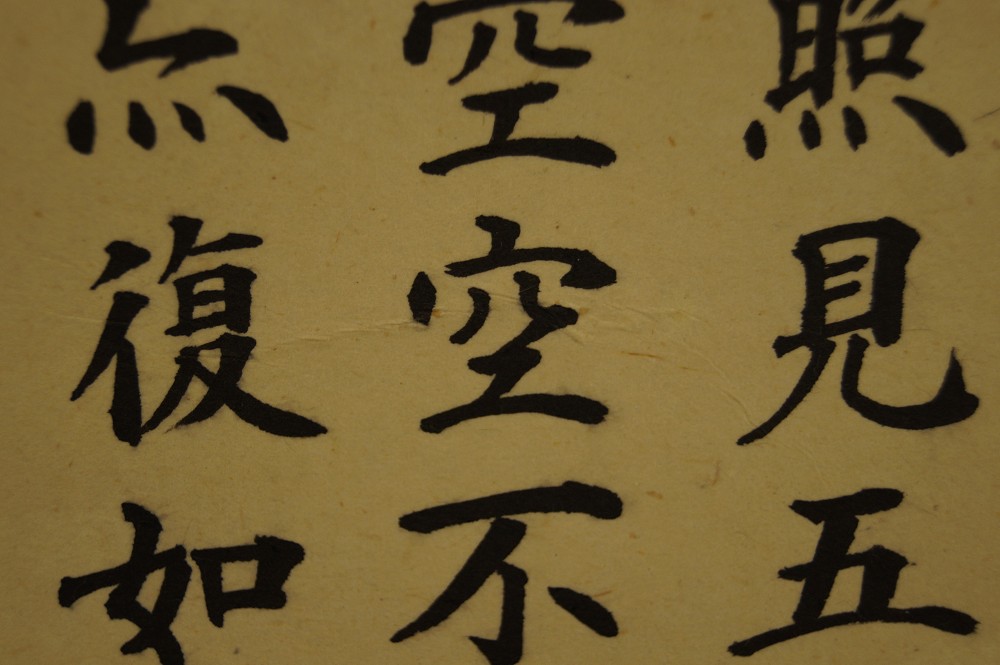 照見五
空空不
亦復如